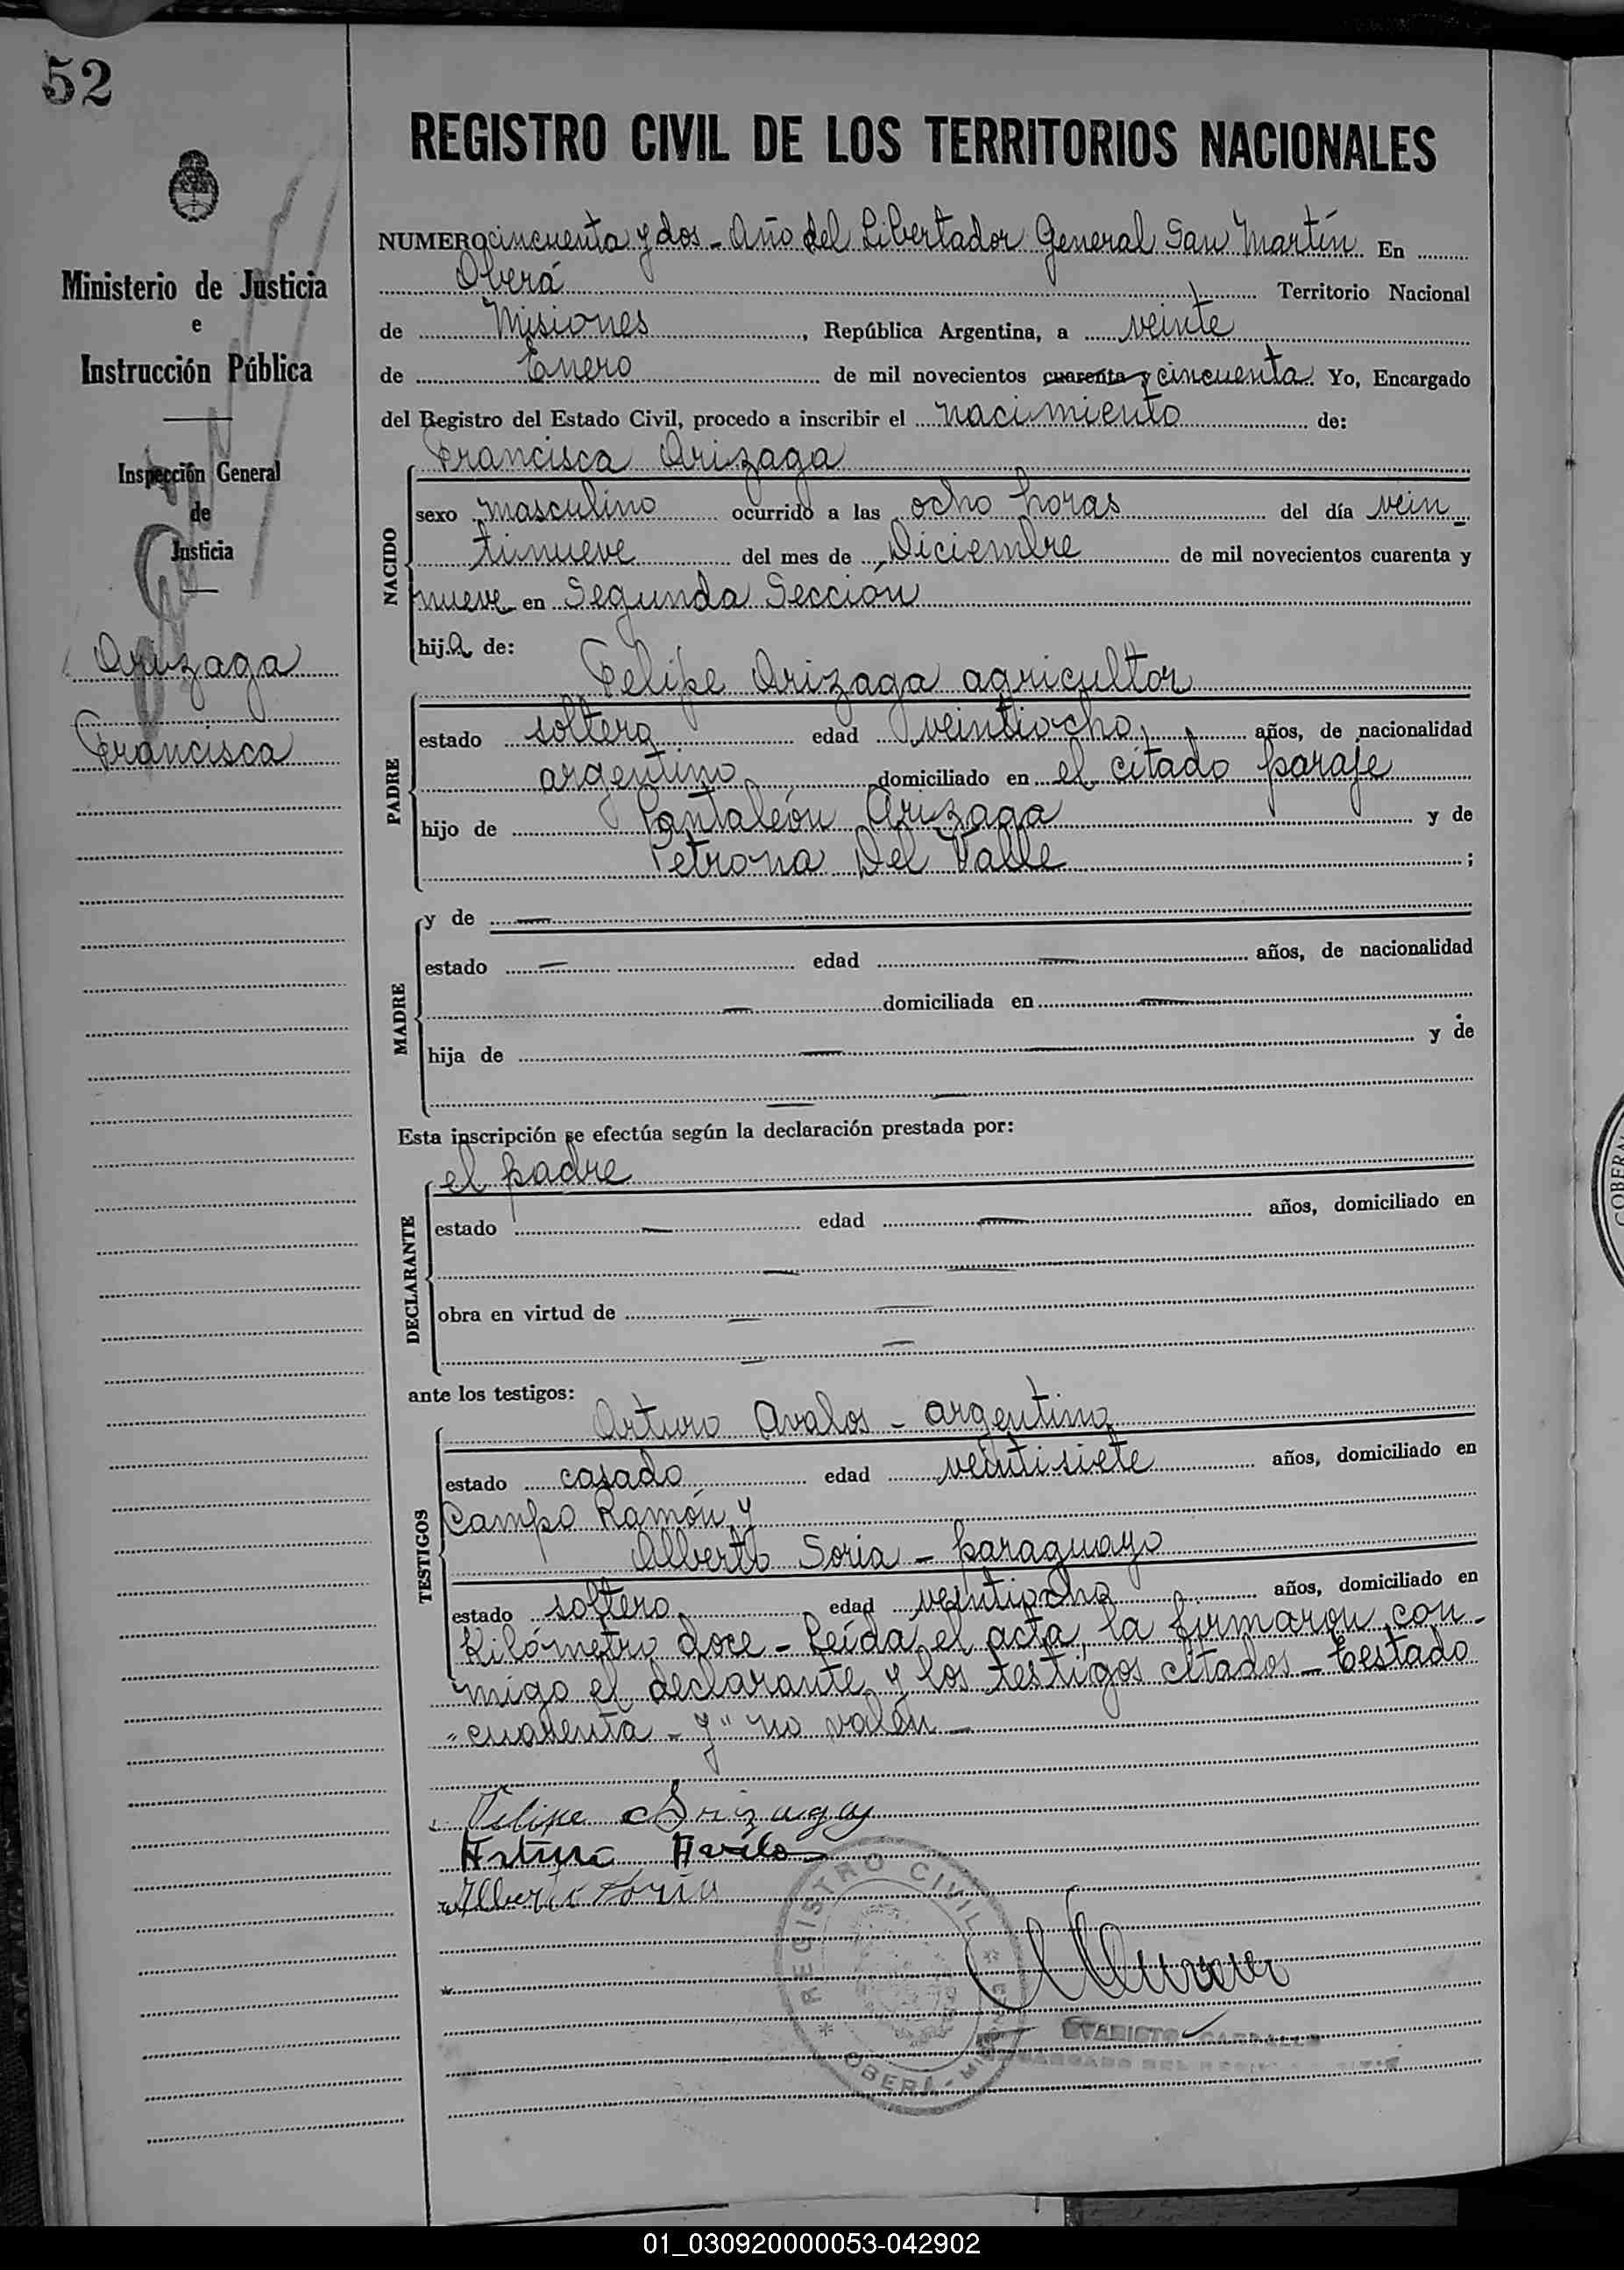 52
Ministerio de Justicia
e
Instrucción Pública
Inspección General
de
Justicia
Arizaga
Francisca
REGISTRO CIVIL DE LOS TERRITORIOS NACIONALES
NUMERO cincuenta y dos - Año del Libertador General San Martín En
Oberá Territorio Nacional
de Misiones, República Argentina, a veinte
de Enero de mil novecientos cuarenta y cincuenta. Yo, Encargado
del Registro del Estado Civil, procedo a inscribir el nacimiento de:
Francisca Arizaga
NACIDO
sexo masculino ocurrido a las ocho horas del día vein-
tinueve del mes de Diciembre de mil novecientos cuarenta y
nueve en Segunda Sección
hija de:
Felipe Arizaga agricultor
PADRE
estado soltero edad veintiocho años, de nacionalidad
argentino domiciliado en el citado paraje
hijo de Pantaleón Arizaga y de
Petrona Del Valle;
MADRE
y de —
estado — edad — años, de nacionalidad
— domiciliada en —
hija de — — y de
— —
Esta inscripción se efectúa según la declaración prestada por:
el padre
DECLARANTE
estado — edad — años, domiciliado en
— —
obra en virtud de — —
— —
ante los testigos:
Arturo Avalos - argentino
TESTIGOS
estado casado edad veintisiete años, domiciliado en
Campo Ramón y
Alberto Soria - paraguayo
estado soltero edad veintiocho años, domiciliado en
Kilómetro doce - Leída el acta, la firmaron con-
migo el declarante y los testigos citados - Testado
"cuarenta - y" no valen -
Felipe Arizaga
Arturo Avalos
Alberto Soria
REGISTRO CIVIL
OBERÁ - MISIONES
01_030920000053-042902